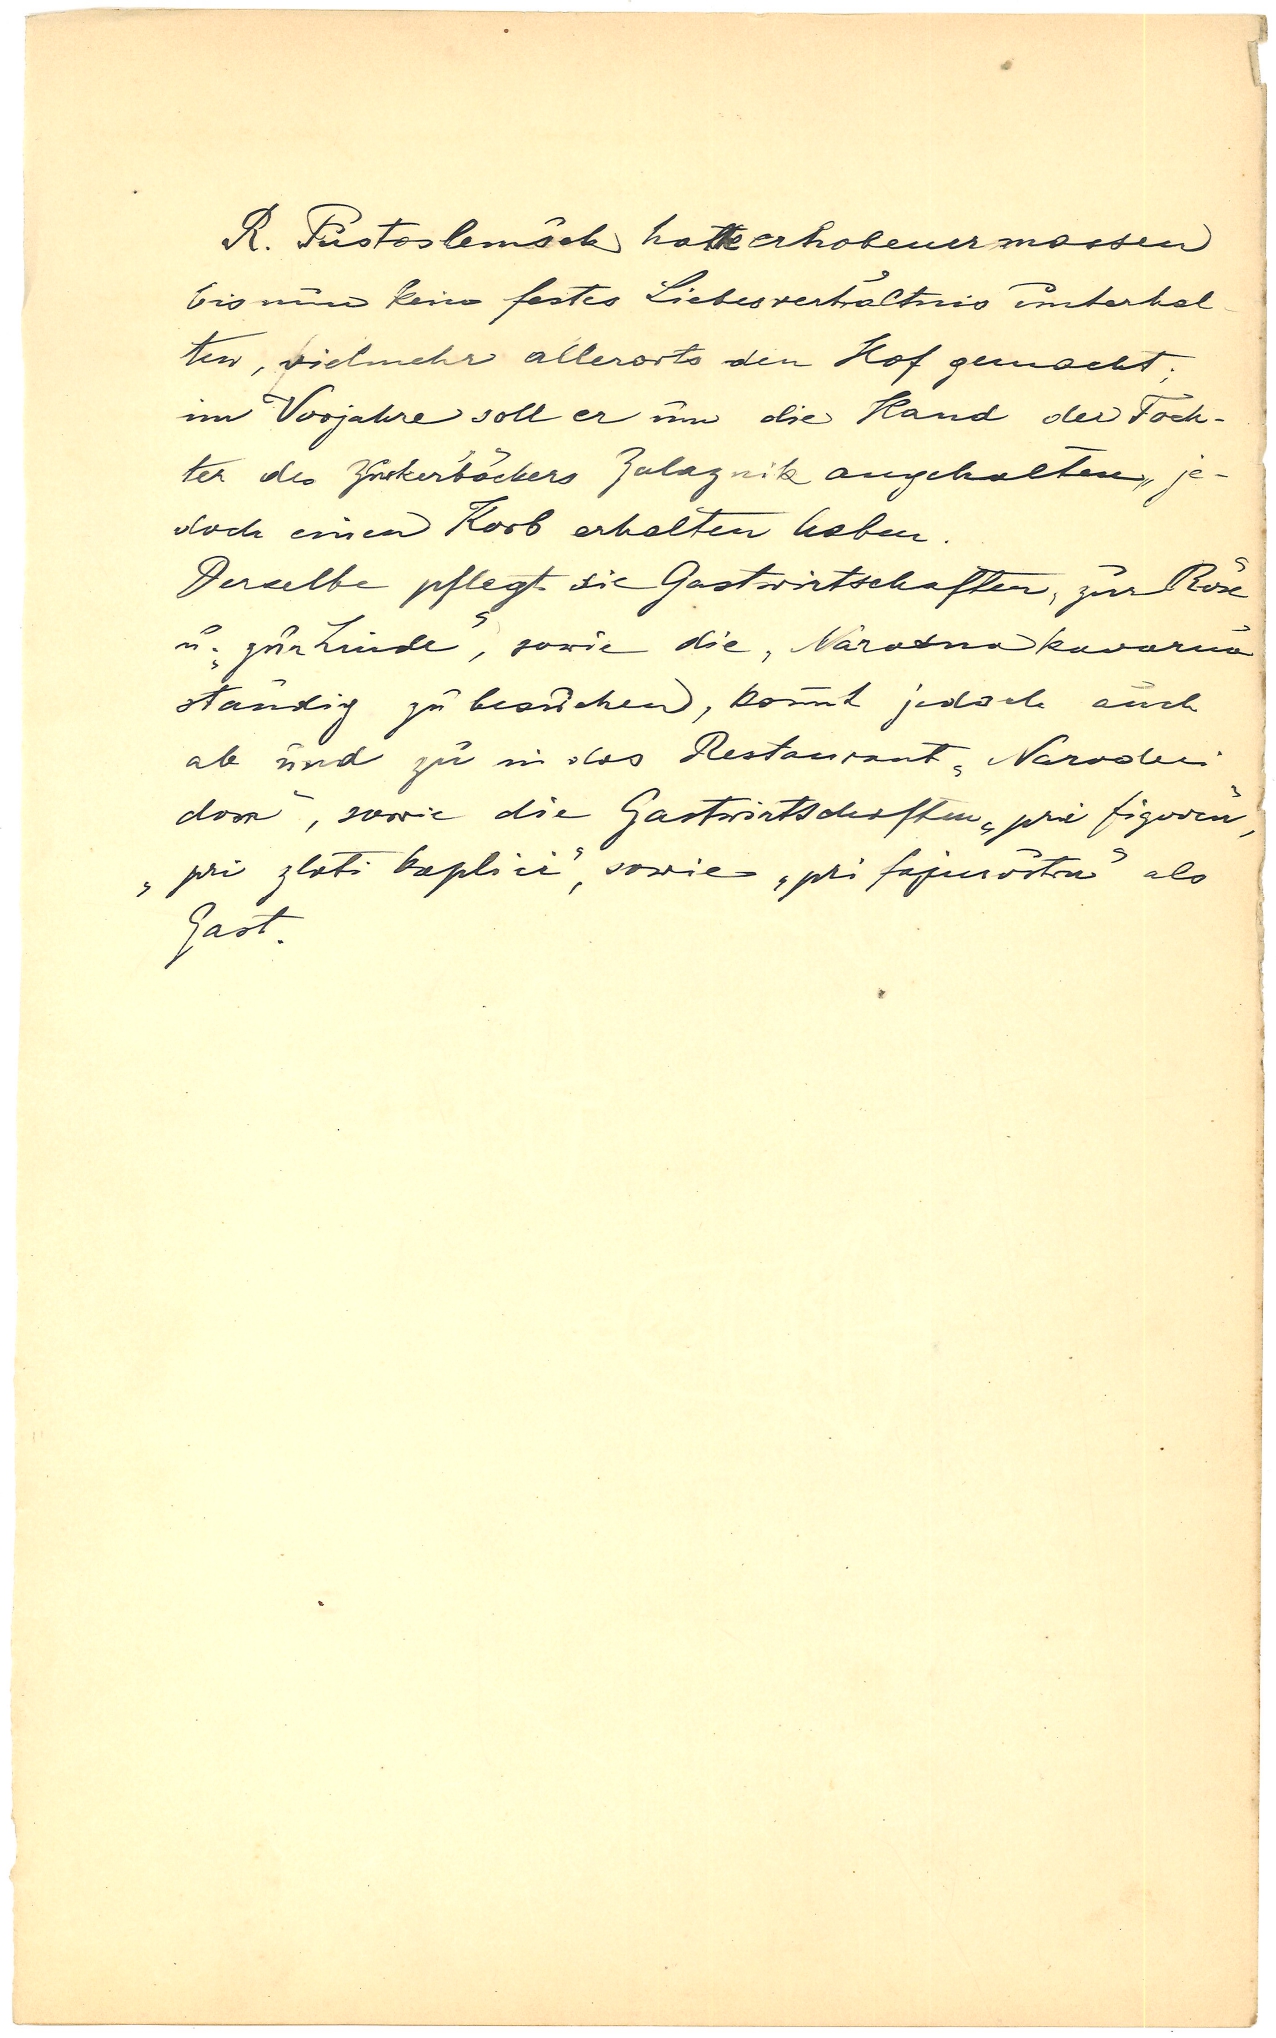 R. Pustoslemšek hatte erhobenermassen
bis nun kein festes Liebesverhältnis unterhal-
ten, vielmehr allerorts den Hof gemacht;
im Vorjahre soll er um die Hand der Toch-
ter des Zuckerbäckers Zalaznik angehalten, je-
doch einen Korb erhalten haben.
Derselbe pflegt die Gastwirtschaften „zur Rose"
u. „zur Linde", sowie die „Narodna kavarna"
ständig zu besuchen, kommt jedoch auch
ab und zu in das Restaurant „Narodni
dom", sowie die Gastwirtschaften „pri figovcu",
„pri zlati kaplici", sowie „pri fajmoštru" als
Gast.